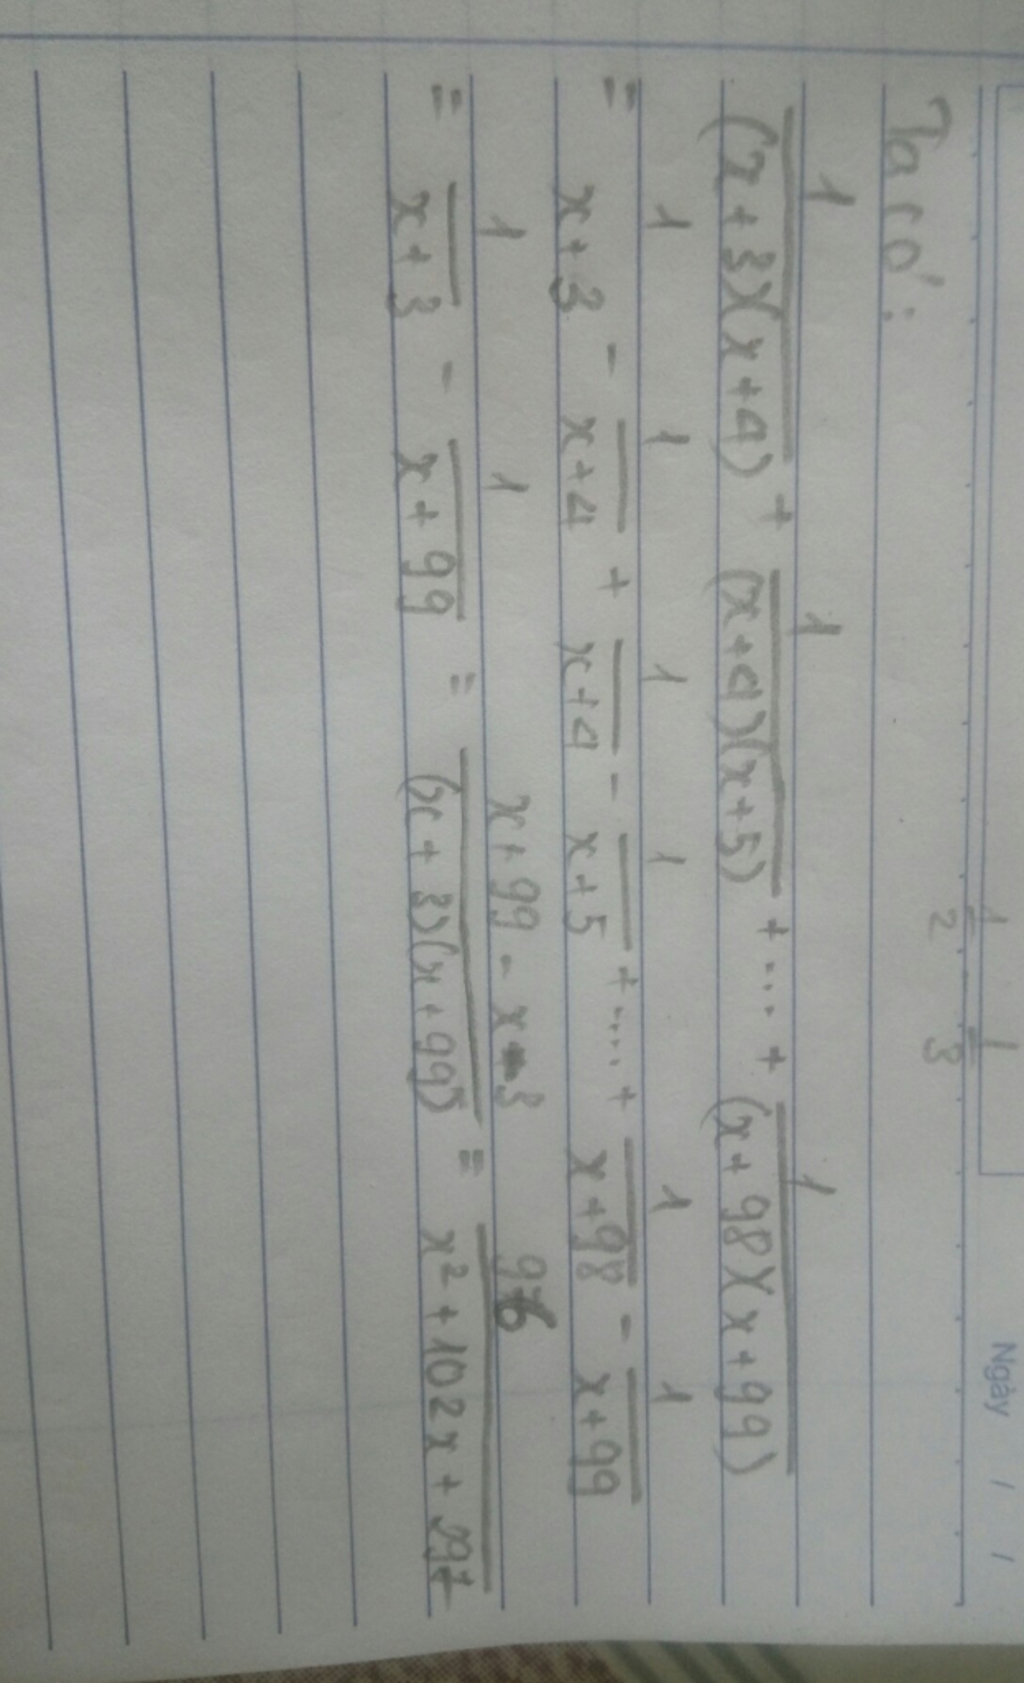 Ngày / /
1/2 . 1/3
Ta có:
1/((x+3)(x+4)) + 1/((x+4)(x+5)) + ... + 1/((x+98)(x+99))
= 1/(x+3) - 1/(x+4) + 1/(x+4) - 1/(x+5) + .... + 1/(x+98) - 1/(x+99)
= 1/(x+3) - 1/(x+99) = (x+99-x-3)/((x+3)(x+99)) = 96/(x²+102x+297)